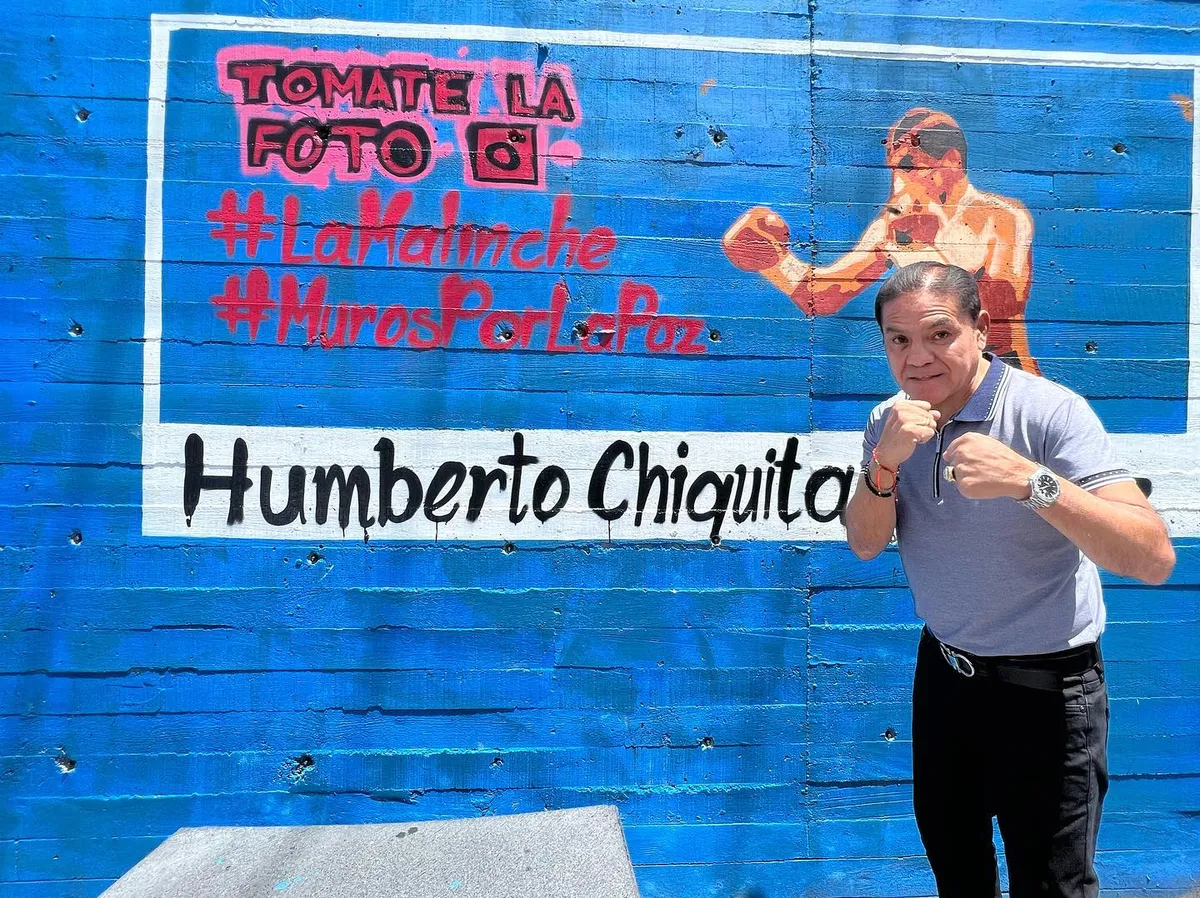 TOMATE LA
FOTO
#LaMalinche
#MurosPorLaPaz
Humberto Chiquita